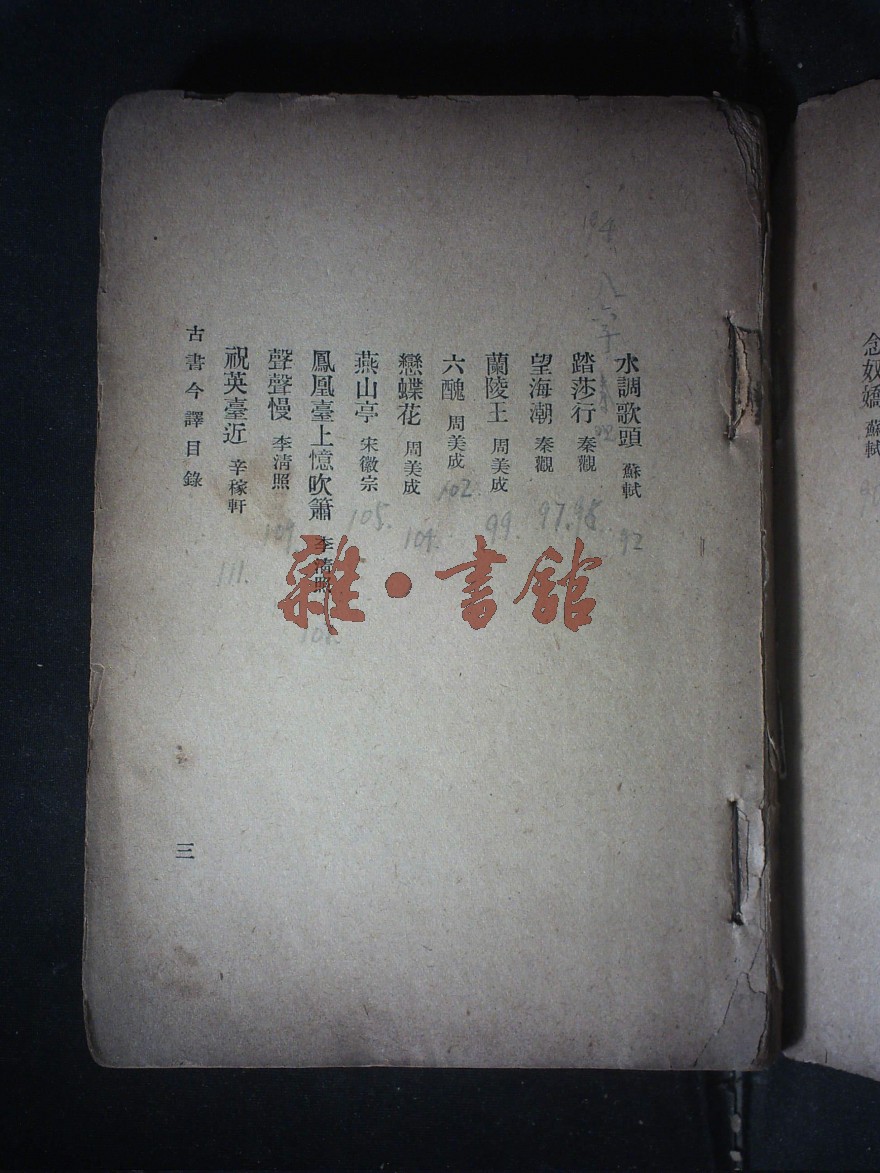 念奴嬌 蘇軾
水調歌頭 蘇軾 92
踏莎行 秦觀
望海潮 秦觀 97.
蘭陵王 周美成 99.
六醜 周美成 102.
戀蝶花 周美成 104.
燕山亭 宋徽宗 105.
鳳凰臺上憶吹簫 李清照
聲聲慢 李清照 109.
祝英臺近 辛稼軒 111.
古書今譯目錄
三
雜·書館